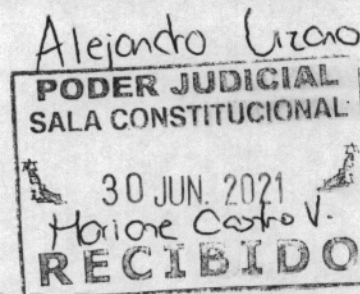 Alejandro Lizano
PODER JUDICIAL
SALA CONSTITUCIONAL
30 JUN. 2021
Mariane Castro V.
RECIBIDO